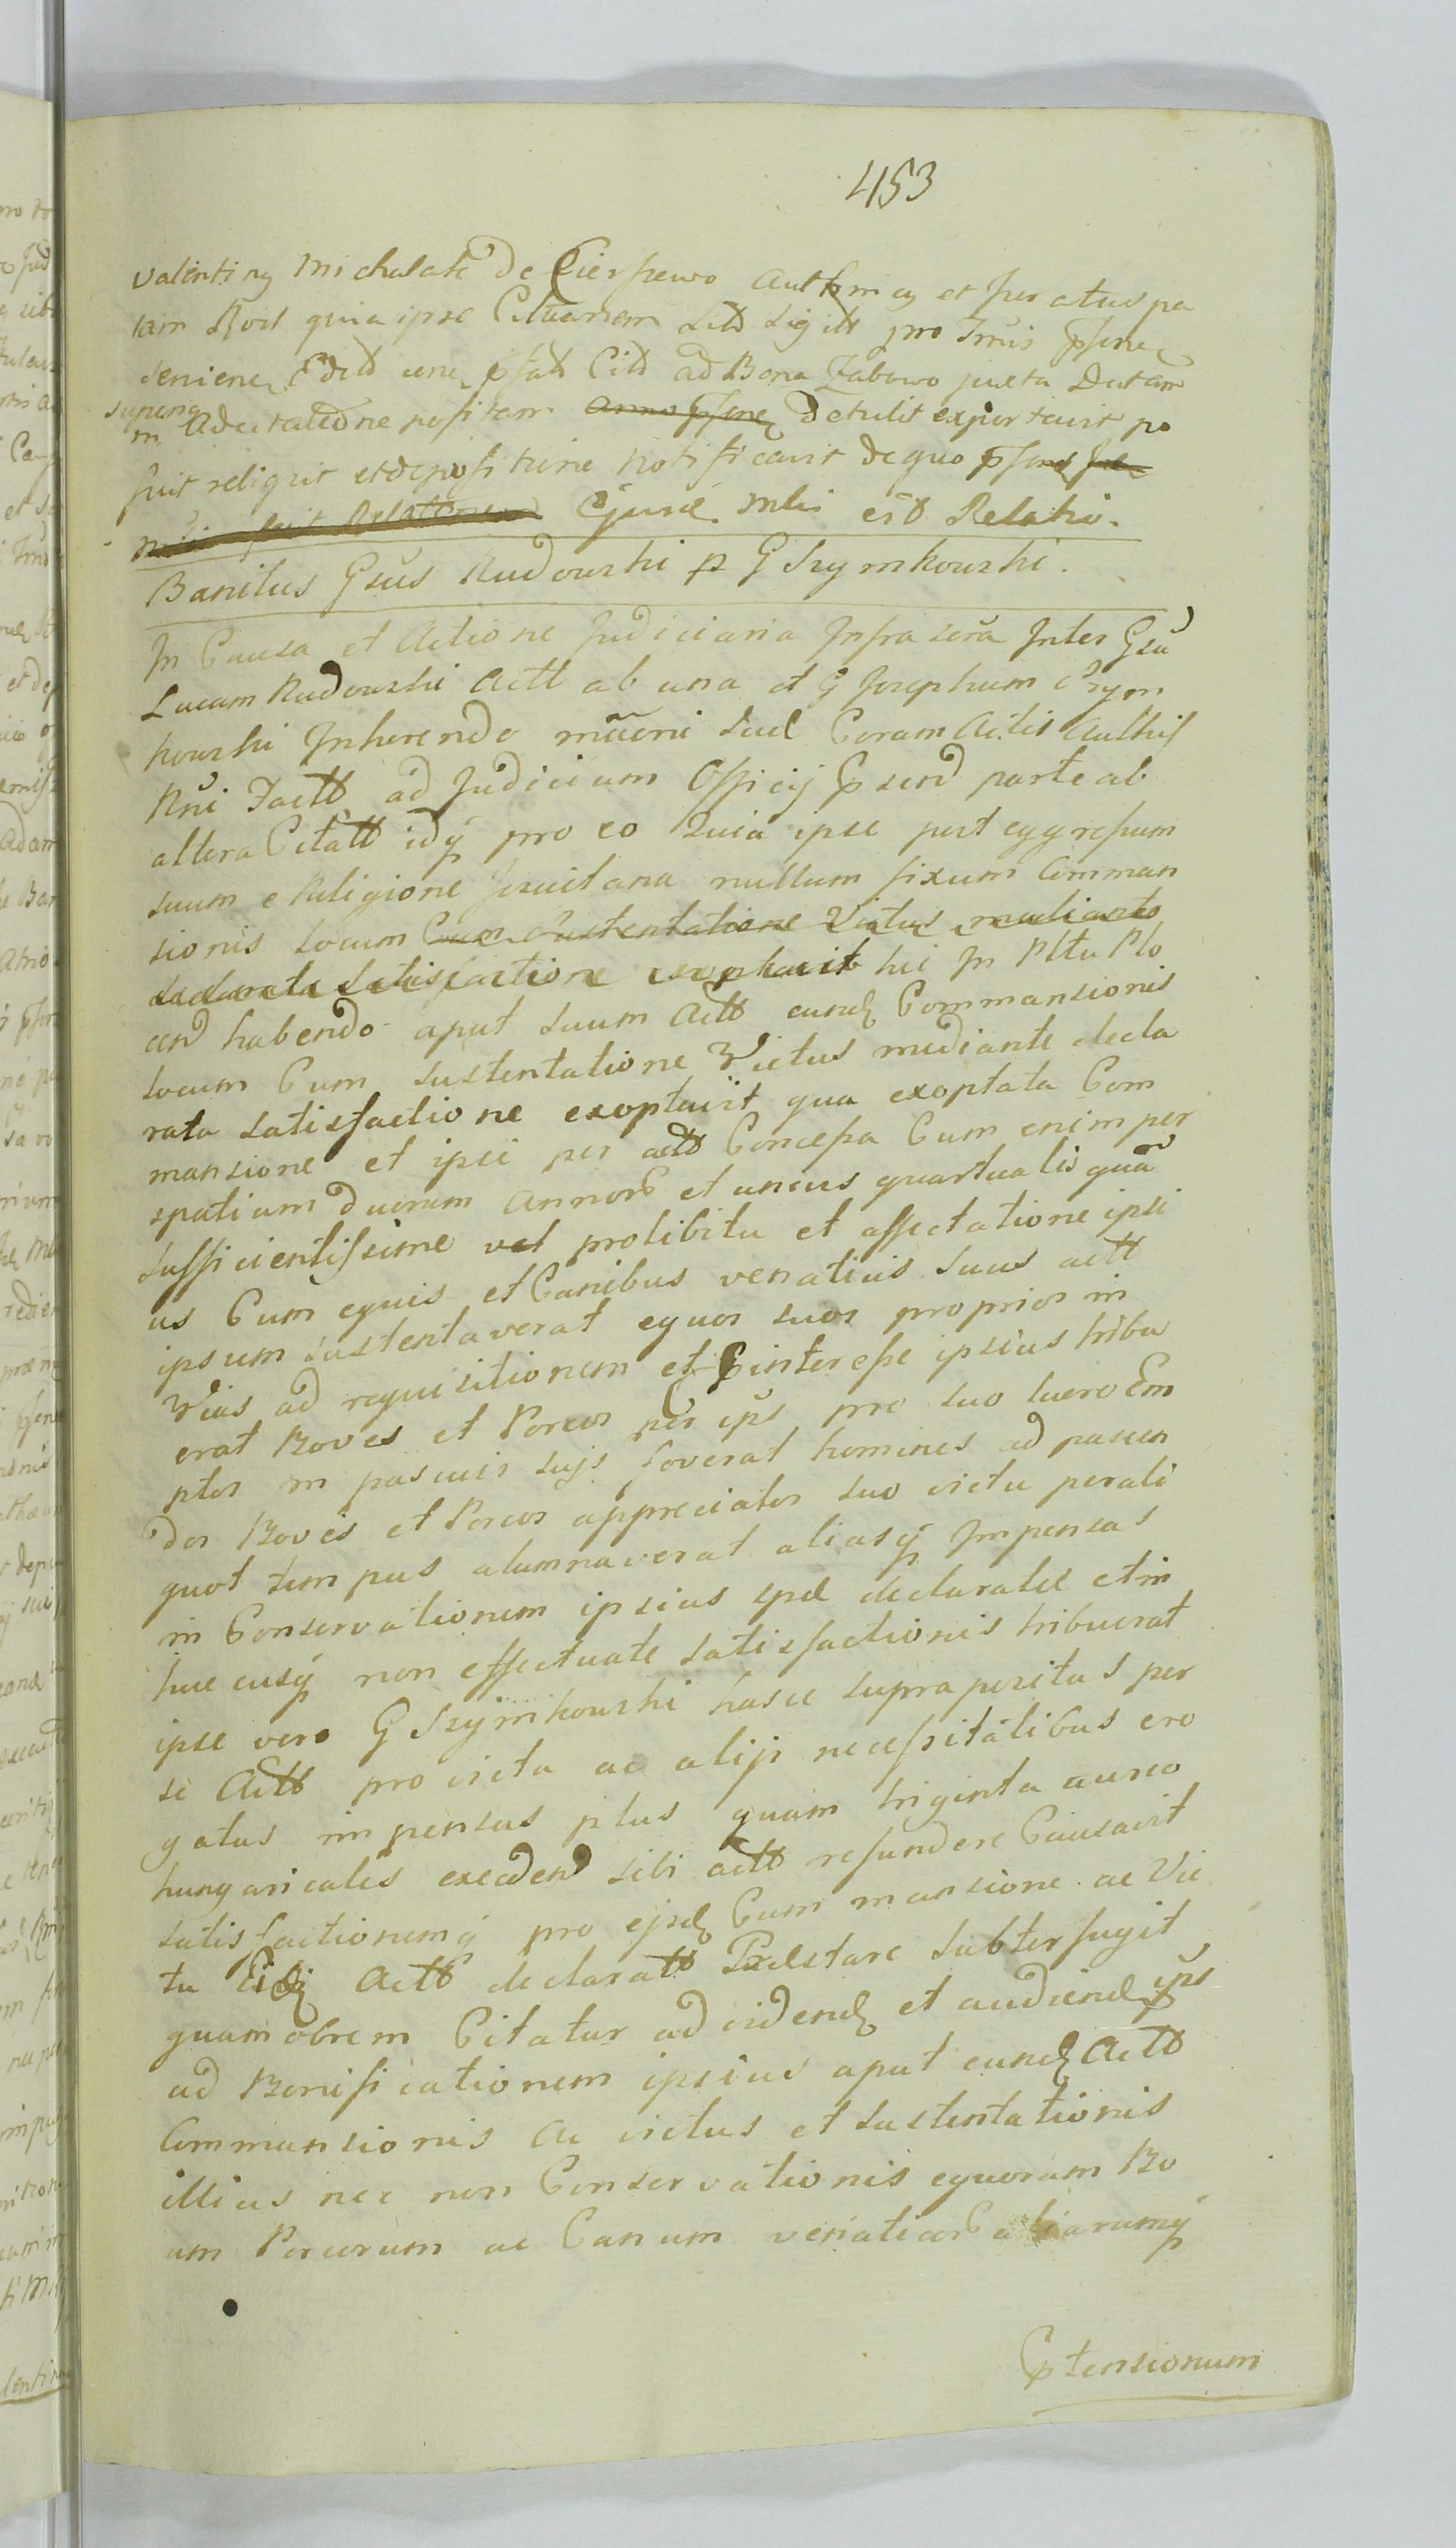 453
Valentinꝯ Michalak de Cierpewo Authenticꝯ et Juratus pa
lam Recit quia ipse Citationem Lit Sigill pro Trmis
Cit ad Bona Zabowo juxta Datam
superius
in Adcitatione positam Anno Detulit exportavit po
suit reliquit et depositione notificavit de quo
Ejusd mbi est Relatio.
Banitus Gsus Rudowski p G Szymkowski.
In Causa et Actione Judiciaria Infra scra Inter Gsu
Lucam Rudowski Actt ab una et G Josephum Szym
kowski Inherendo mãoni Sud Coram Actis Authis
Rni Factt ad Judicium Officij psend parte ab
altera Citatt idq pro eo Quia ipse post eggressum
suum e Religione Jesuitana nullum fixum Comman
sionis locum Cum Sustentatione Victus mediante
declarata Satisfactione exoptavit hic In Pltu Plo
cen habendo aput suum Actt eund Commansionis
locum Cum sustentatione Victus mediante decla
rata satisfactione exoptavit qua exoptata Com
mansione et ipsi per actt Concessa Cum enim per
spatium duorum annor et uncus quartualis quã
sufficientissime vel prolibitu et affectatione ipsi
us Cum equis et Canibus venaticis suus actt
ipsum sustentaverat equos suos proprios in
Vias ad requisitionem et interesse ipsius tribu
erat Boves et Porcos per ips pro suo lucro Em
ptos in pascuis sujs foverat homines ad pascen
dos Boves et Porcos appreciatos suo victu perali
quot tempus alumnaverat aliasq Impensas
in Conservationem ipsius spe declarate et in
huc cusq non effectuate satisfactionis tribuerat
ipse vero G Szymkowski hasce supra positas per
se Actt pro victu ac alijs necessitatibus ero
gatas impensas plus quam triginta aureo
hungaricales exceden sibi actt refundere Causavit
satisfactionemq pro ejsd Cum mansione ac Vic
tu Eid Actt declaratt Praestare subterfugit
quam obrem Citatur ad vidend et audiend ips
ad Bonificationem ipsius aput eund Actt
Commansionis ac victus et sustentationis
illius nec non Conservationis equorum Bo
um Porcorum ac Canum venaticor aliarumq
Ptensionum